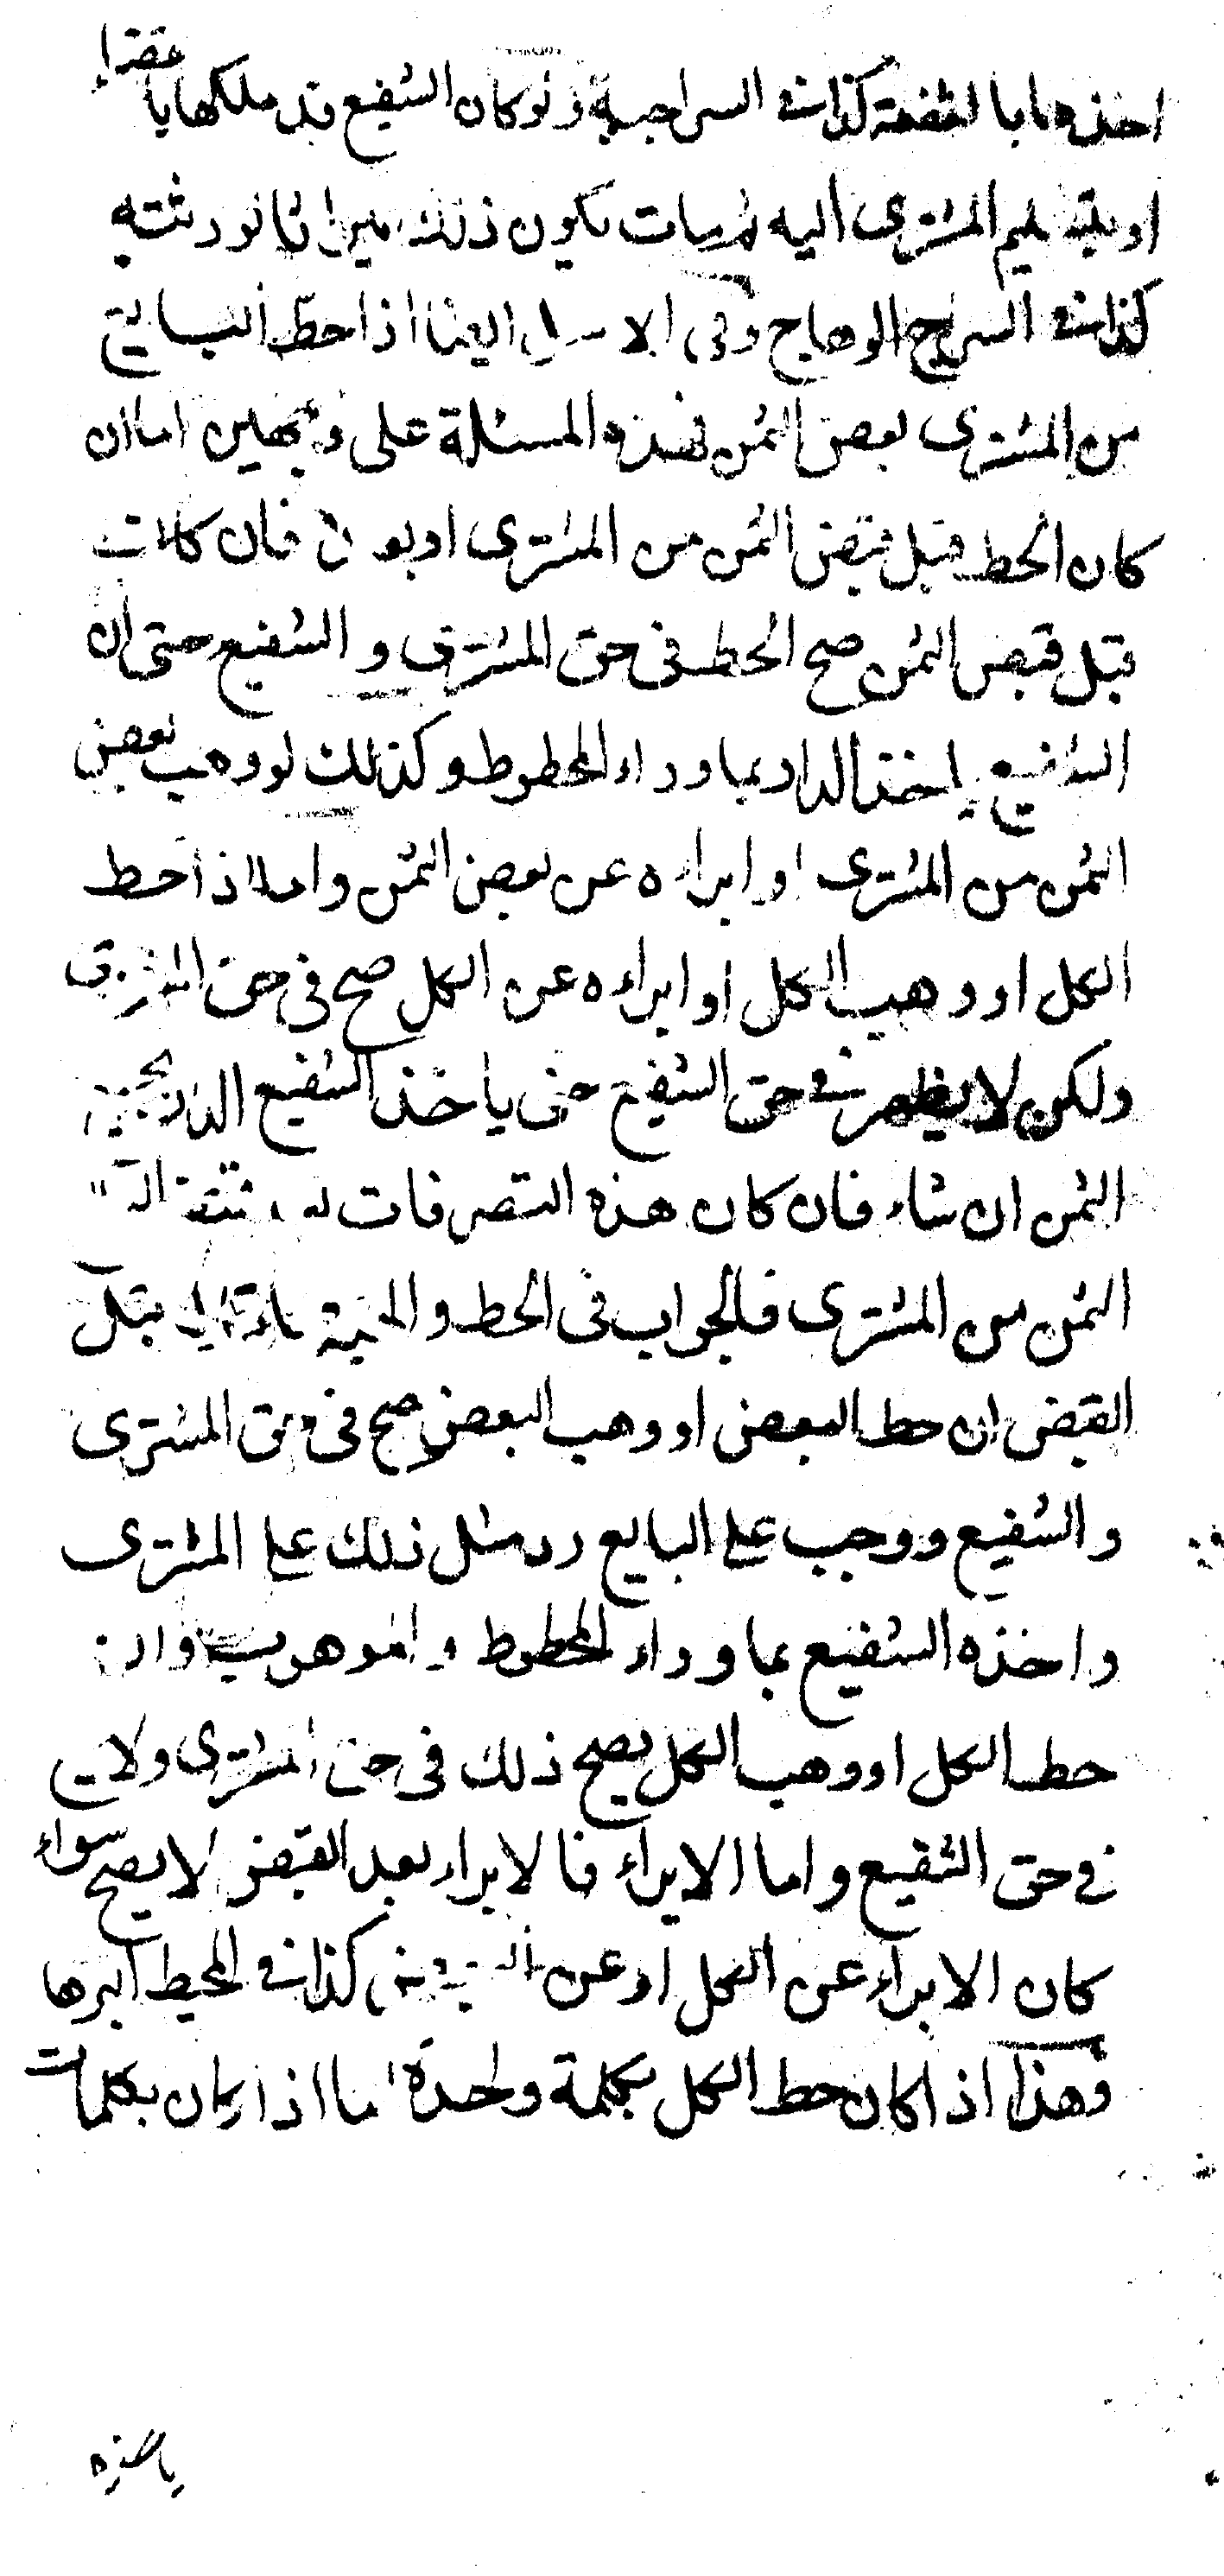 اخذوها بالشفعة كذا في السراجية ولو كان الشفيع قد ملكها بالقضاء
او بتسليم المشترى اليه ثم مات يكون ذلك ميراثا لورثته
كذا في السراج الوهاج وفي الاصل ايضا اذا حط البايع
من المشترى بعض الثمن فهذه المسئلة على وجهين اما ان
كان الحط قبل قبض الثمن من المشترى او بعده فان كان
قبل قبض الثمن صح الحط في حق المشترى و الشفيع حتى ان
الشفيع ياخذ الدار بما وراء المحطوط وكذلك لو وهب بعض
الثمن من المشترى او ابراءه عن بعض الثمن واما اذا حط
الكل او وهب الكل او ابراءه عن الكل صح في حق المشترى
ولكن لا يظهر في حق الشفيع حتى ياخذ الشفيع الدار بجميع
الثمن ان شاء فان كان هذه التصرفات
الثمن من المشترى فالجواب في الحط و الهبة قبل
القبض ان حط البعض او وهب البعض صح في حق المشترى
و الشفيع ووجب على البايع رد مثل ذلك على المشترى
واخذه الشفيع بما وراء المحطوط و الموهوب وان
حط الكل او وهب الكل يصح ذلك في حق المشترى ولا يصح
في حق الشفيع واما الابراء فالابراء بعد القبض لا يصح سواء
كان الابراء عن الكل او عن البعض كذا في المحيط البرها
وهذا اذا كان حط الكل بكلمة واحدة اما اذا كان بكلمات
ياخذه